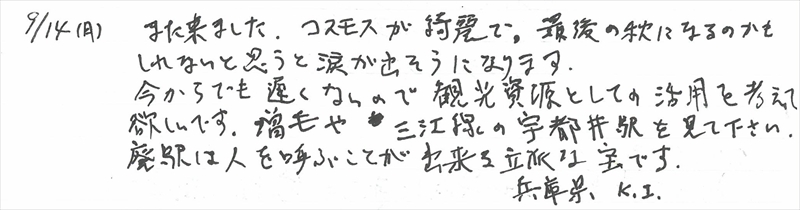 9/14(月) また来ました。コスモスが綺麗で。最後の秋になるのかも
しれないと思うと涙が出そうになります。
今からでも遅くないので観光資源としての活用を考えて
欲しいです。増毛や三江線の宇都井駅を見て下さい。
廃駅は人を呼ぶことが出来る立派な宝です。
兵庫県、K.I.